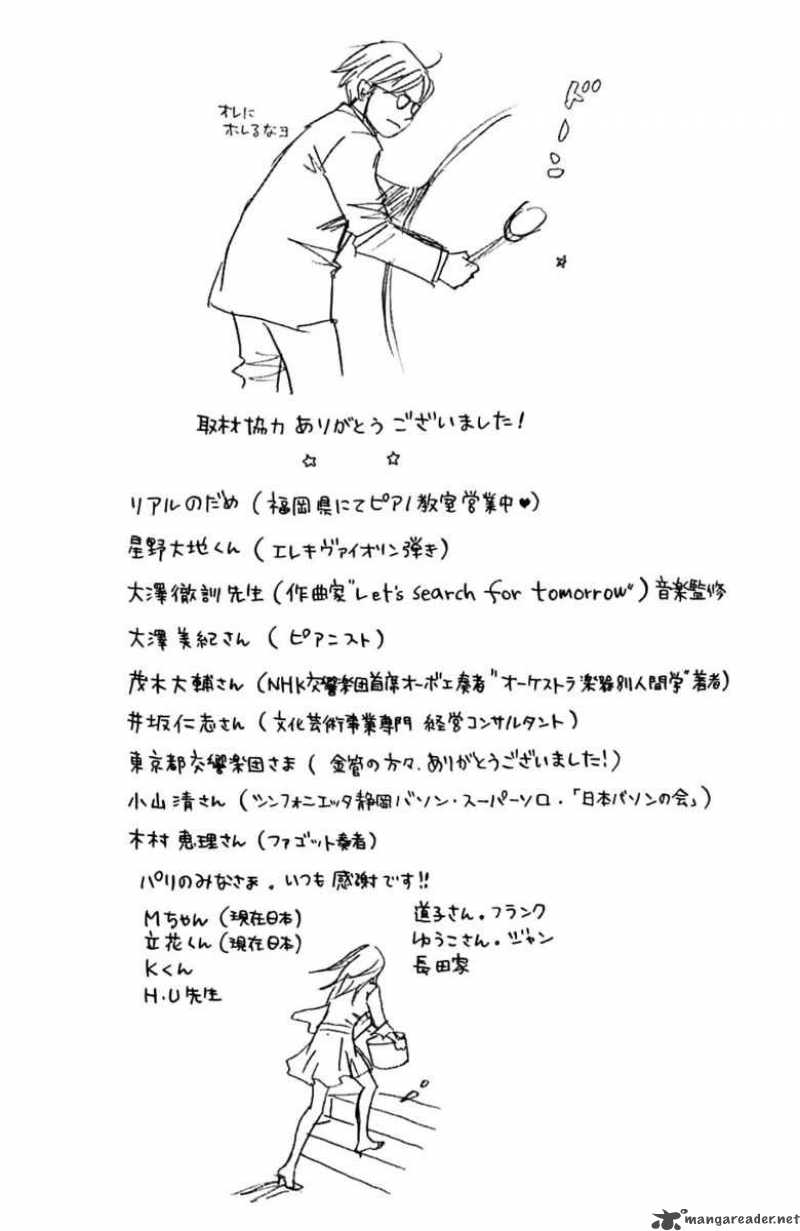 オレに
ホレるなヨ
ドーン
取材協力 ありがとう ございました!
リアルのだめ (福岡県にてピアノ教室営業中♥)
星野大地くん (エレキヴァイオリン弾き)
大澤徹訓先生 (作曲家"Let's search for tomorrow")音楽監修
大澤美紀さん (ピアニスト)
茂木大輔さん (NHK交響楽団首席オーボエ奏者"オーケストラ楽器別人間学"著者)
井坂仁志さん (文化芸術事業専門 経営コンサルタント)
東京都交響楽団さま (金管の方々、ありがとうございました!)
小山清さん (シンフォニエッタ静岡バソン・スーパーソロ・「日本バソンの会」)
木村恵理さん (ファゴット奏者)
パリのみなさま。いつも感謝です!!
Mちゃん (現在日本)
立花くん (現在日本)
Kくん
H.U先生
道子さん。フランク
ゆうこさん。ジャン
長田家
mangareader.net